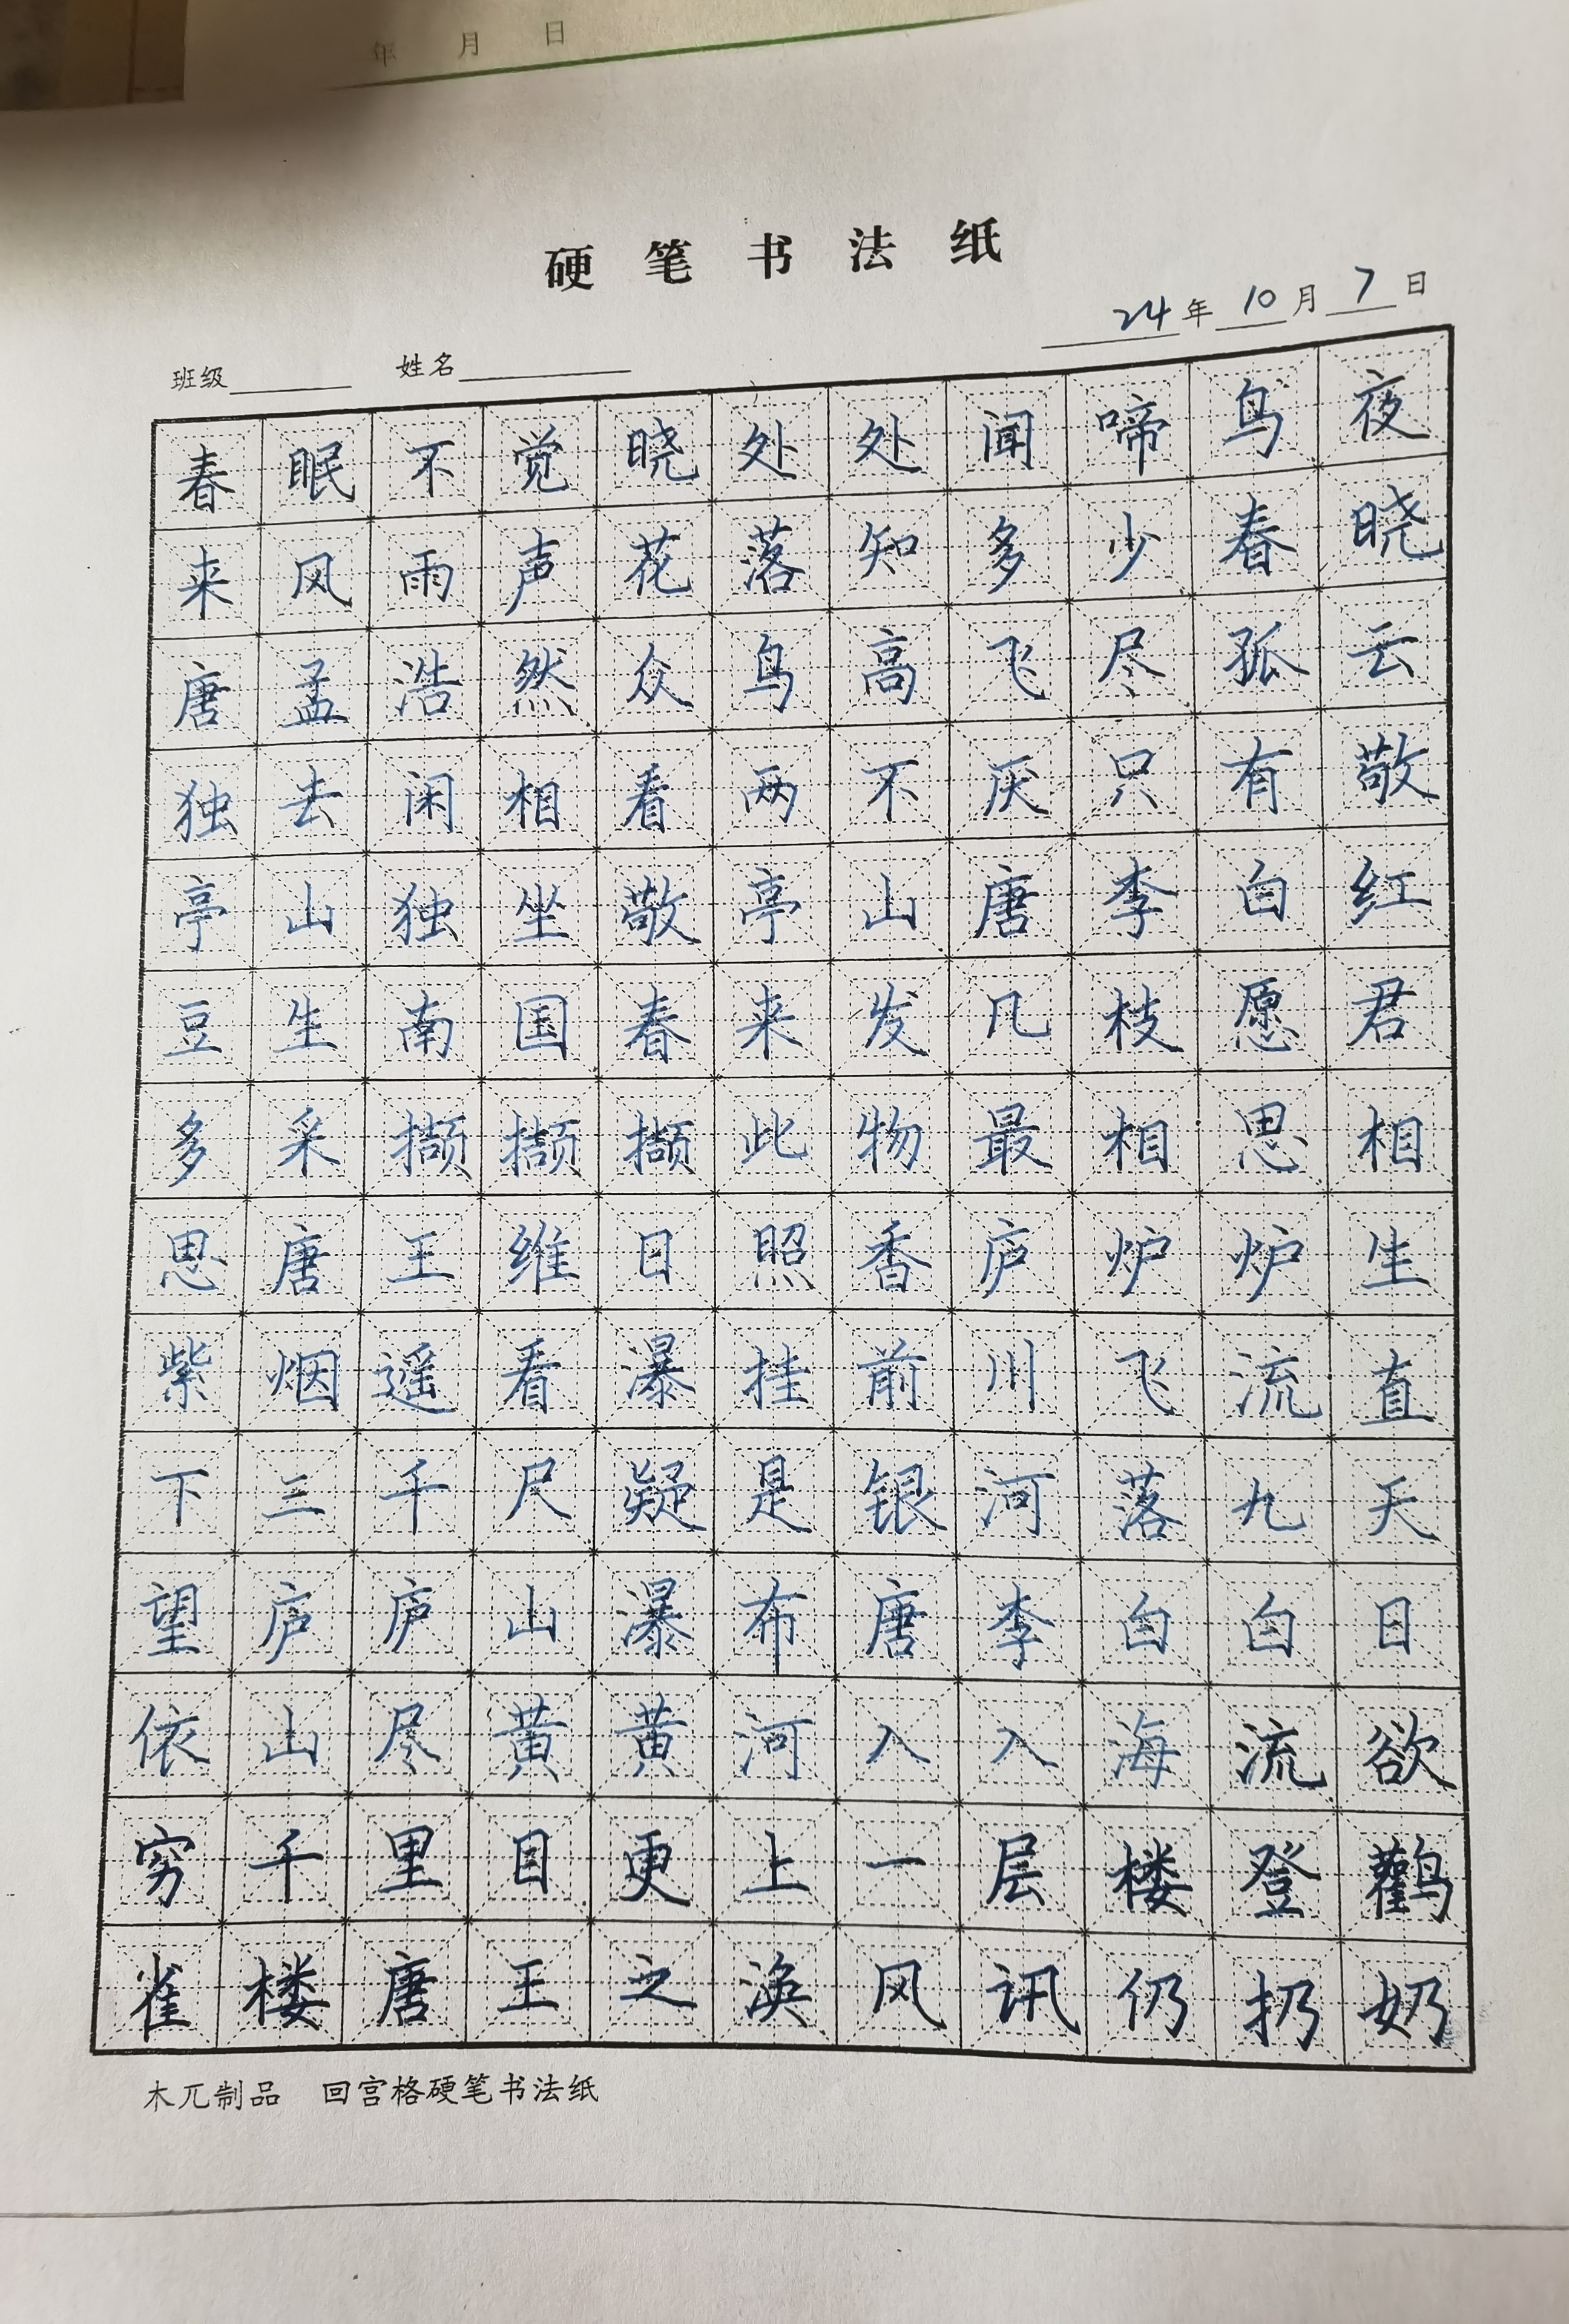 年 月 日
硬笔书法纸
24年10月7日
班级 姓名
春眠不觉晓处处闻啼鸟夜
来风雨声花落知多少春晓
唐孟浩然众鸟高飞尽孤云
独去闲相看两不厌只有敬
亭山独坐敬亭山唐李白红
豆生南国春来发几枝愿君
多采撷撷撷此物最相思相
思唐王维日照香庐炉炉生
紫烟遥看瀑挂前川飞流直
下三千尺疑是银河落九天
望庐庐山瀑布唐李白白日
依山尽黄黄河入入海流欲
穷千里目更上一层楼登鹳
雀楼唐王之涣风讯仍扔奶
木兀制品 回宫格硬笔书法纸